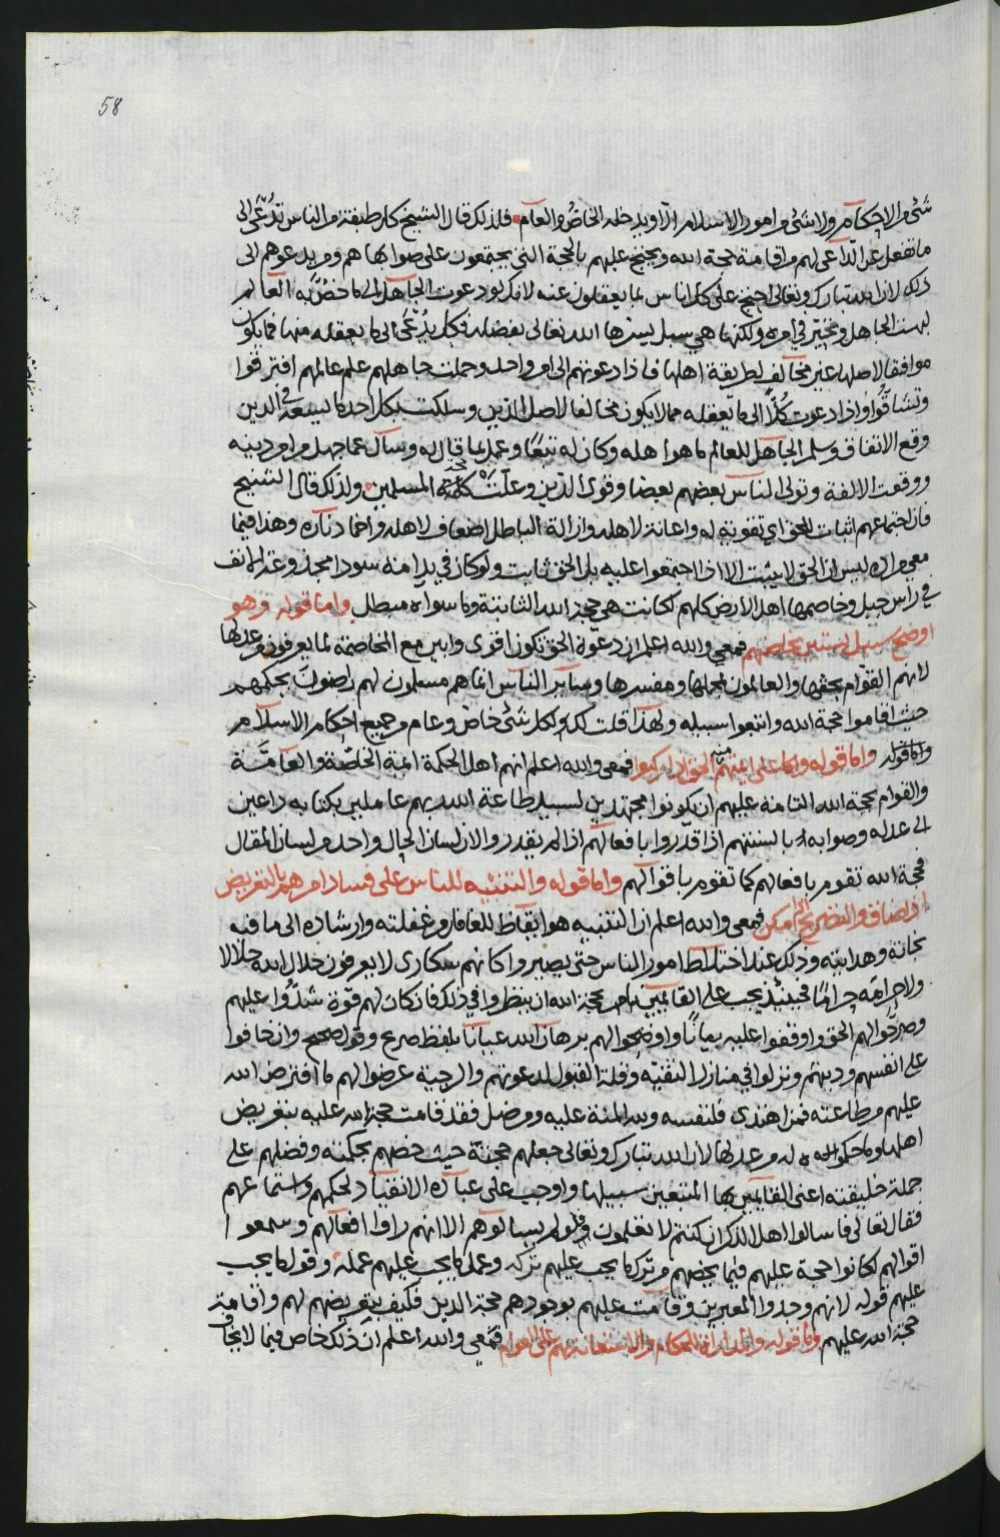 58
شئ من الاحكام ولا شئ من امور الاسلام الا ويدخله الخاص والعام فلذلك قال الشيخ كل طبقة من الناس تدعى الى
ما تعقل عن الداعي لهم من اقامة حجة الله ويحتج عليهم بالحجة التي يجتمعون على صوابها هم ومن يدعوهم الى
ذلك لان الله تبارك وتعالى احتج على كل الناس بما يعقلون عنه لانك لو دعوت الجاهل الى ما خص به العالم
لبهت الجاهل وتحير في امره ولكنها هي سبل يسرها الله تعالى بفضله فكل يدعى الى ما يعقله منها فما يكون
موافقا لاصلها غير مخالف لطريقة اهلها فاذا دعوتهم الى امر واحد وحملت جاهلهم علم عالمهم افترقوا
وتشاقوا واذا دعوت كلا الى ما تعقله مما لا يكون مخالفا لاصل الدين وسلكت بكل احد ما يسعه في الدين
وقع الاتفاق وسلم الجاهل للعالم ما هو اهله وكان له تبعا وعمل بما قال له وسأل عما جهل من امر دينه
ووقعت الالفة وتولى الناس بعضهم بعضا وقوى الدين وعلت كلمة المسلمين ولذلك قال الشيخ
فان اجتماعهم اثبات للحق اي تقوية له واعانة لاهله وازالة الباطل اضعاف لاهله واخماد ناره وهذا فيما
معي مراده ليس ان الحق لا يثبت الا اذا اجتمعوا عليه بل الحق ثابت ولو كان في يد امة سودا
في راس جبل وخاصمها اهل الارض كلهم لكانت هي حجة الله الثابتة وما سواه مبطل واما قوله وهو
اوضح سبيل فمعي والله اعلم ان دعوة الحق تكون اقوى وابين مع الخاصة لما يعرفون من عدلها
لانهم القوام بحقها والعالمون بمجملها ومفسرها وسائر الناس انما هم مسلمون لهم راضون بحكمهم
حيث اقاموا حجة الله واتبعوا سبيله ولهذا قلت لك ولكل شئ خاص وعام من جميع احكام الاسلام
واما قوله واما قوله وانما على ائمتهم الحق فمعي والله اعلم انهم اهل الحكمة ائمة الخاصة والعامة
والقوام بحجة الله التامة عليهم ان يكونوا مجتهدين لسبيل طاعة الله بهم عاملين بكتابه داعين
الى عدله وصوابه بالسنتهم اذا قدروا بافعالهم اذا لم يقدروا لان لسان الحال واحد من لسان المقال
فحجة الله تقوم بافعالهم كما تقوم باقوالهم واما قوله والتنبيه للناس على فساد امرهم بالتعريض
والتصريح ان امكن فمعي والله اعلم ان التنبيه هو ايقاظ للغافل من غفلته وارشاده الى ما فيه
نجاته وهدايته وذلك عند اختلاط امور الناس حتى يصيروا كانهم سكارى لا يعرفون حلال الله حلالا
ولا حرامه حراما فحينئذ يجب على القائمين لله بحجة الله ان ينظروا في ذلك فان كان لهم قوة شدوا عليهم
وصرحوا لهم الحق واوقفوا عليه بيانا واوضحوا لهم برهان الله عيانا بلفظ صريح وقول صحيح وان خافوا
على انفسهم ودينهم ونزلوا في منازل التقية وقلة القبول لدعوتهم والرجية عرضوا لهم ما افترض الله
عليهم من طاعته فمن اهتدى فلنفسه ولله المنة عليه ومن ضل فقد قامت حجة الله عليه بتعريض
اهلها وما حكوا له من عدلها لان الله تبارك وتعالى جعلهم حجته حيث خصهم بحكمته وفضلهم على
جملة خليقته اعنى القائمين بها المتبعين سبيلها واوجب على عباده الانقياد لحكمهم واستماعهم
فقال تعالى فاسألوا اهل الذكر ان كنتم لا تعلمون ولو لم يسألوهم الا انهم راوا افعالهم وسمعوا
اقوالهم لكانوا حجة عليهم فيما يخصهم من ترك ما يجب عليهم تركه وعمل ما يجب عليهم عمله وقول ما يجب
عليهم قوله لانهم وجدوا المعبرين وقامت عليهم بوجودهم حجة الدين فكيف بتعريضهم لهم واقامة
حجة الله عليهم واما قوله والاستعانة بهم على العوام فمعي والله اعلم ان ذلك خاص فيما لا يخاف